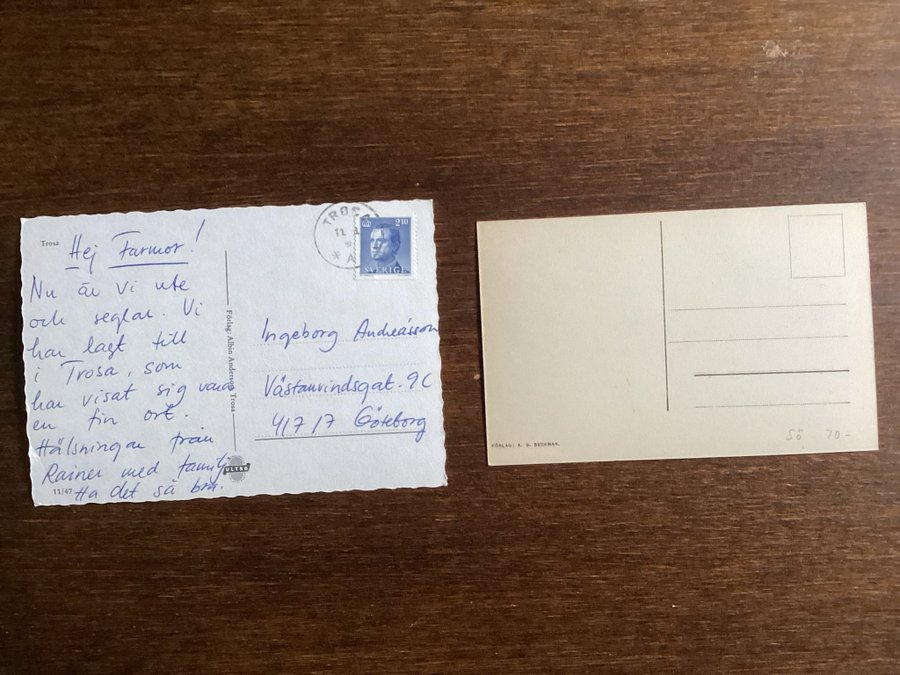 Trosa
Hej Farmor!
Nu är vi ute
och seglar. Vi
har lagt till
i Trosa, som
har visat sig vara
en fin ort.
Hälsningar från
Rainer med familj
Ha det så bra.
11/47
Förlag: Albin Anderson, Trosa
ULTRA
TROSA
11
* A
2.10
SVERIGE
Ingeborg Andreásson
Västanvindsgat. 9C
417 17 Göteborg
FÖRLAG: K. G. BECKMAN.
Sö 70-